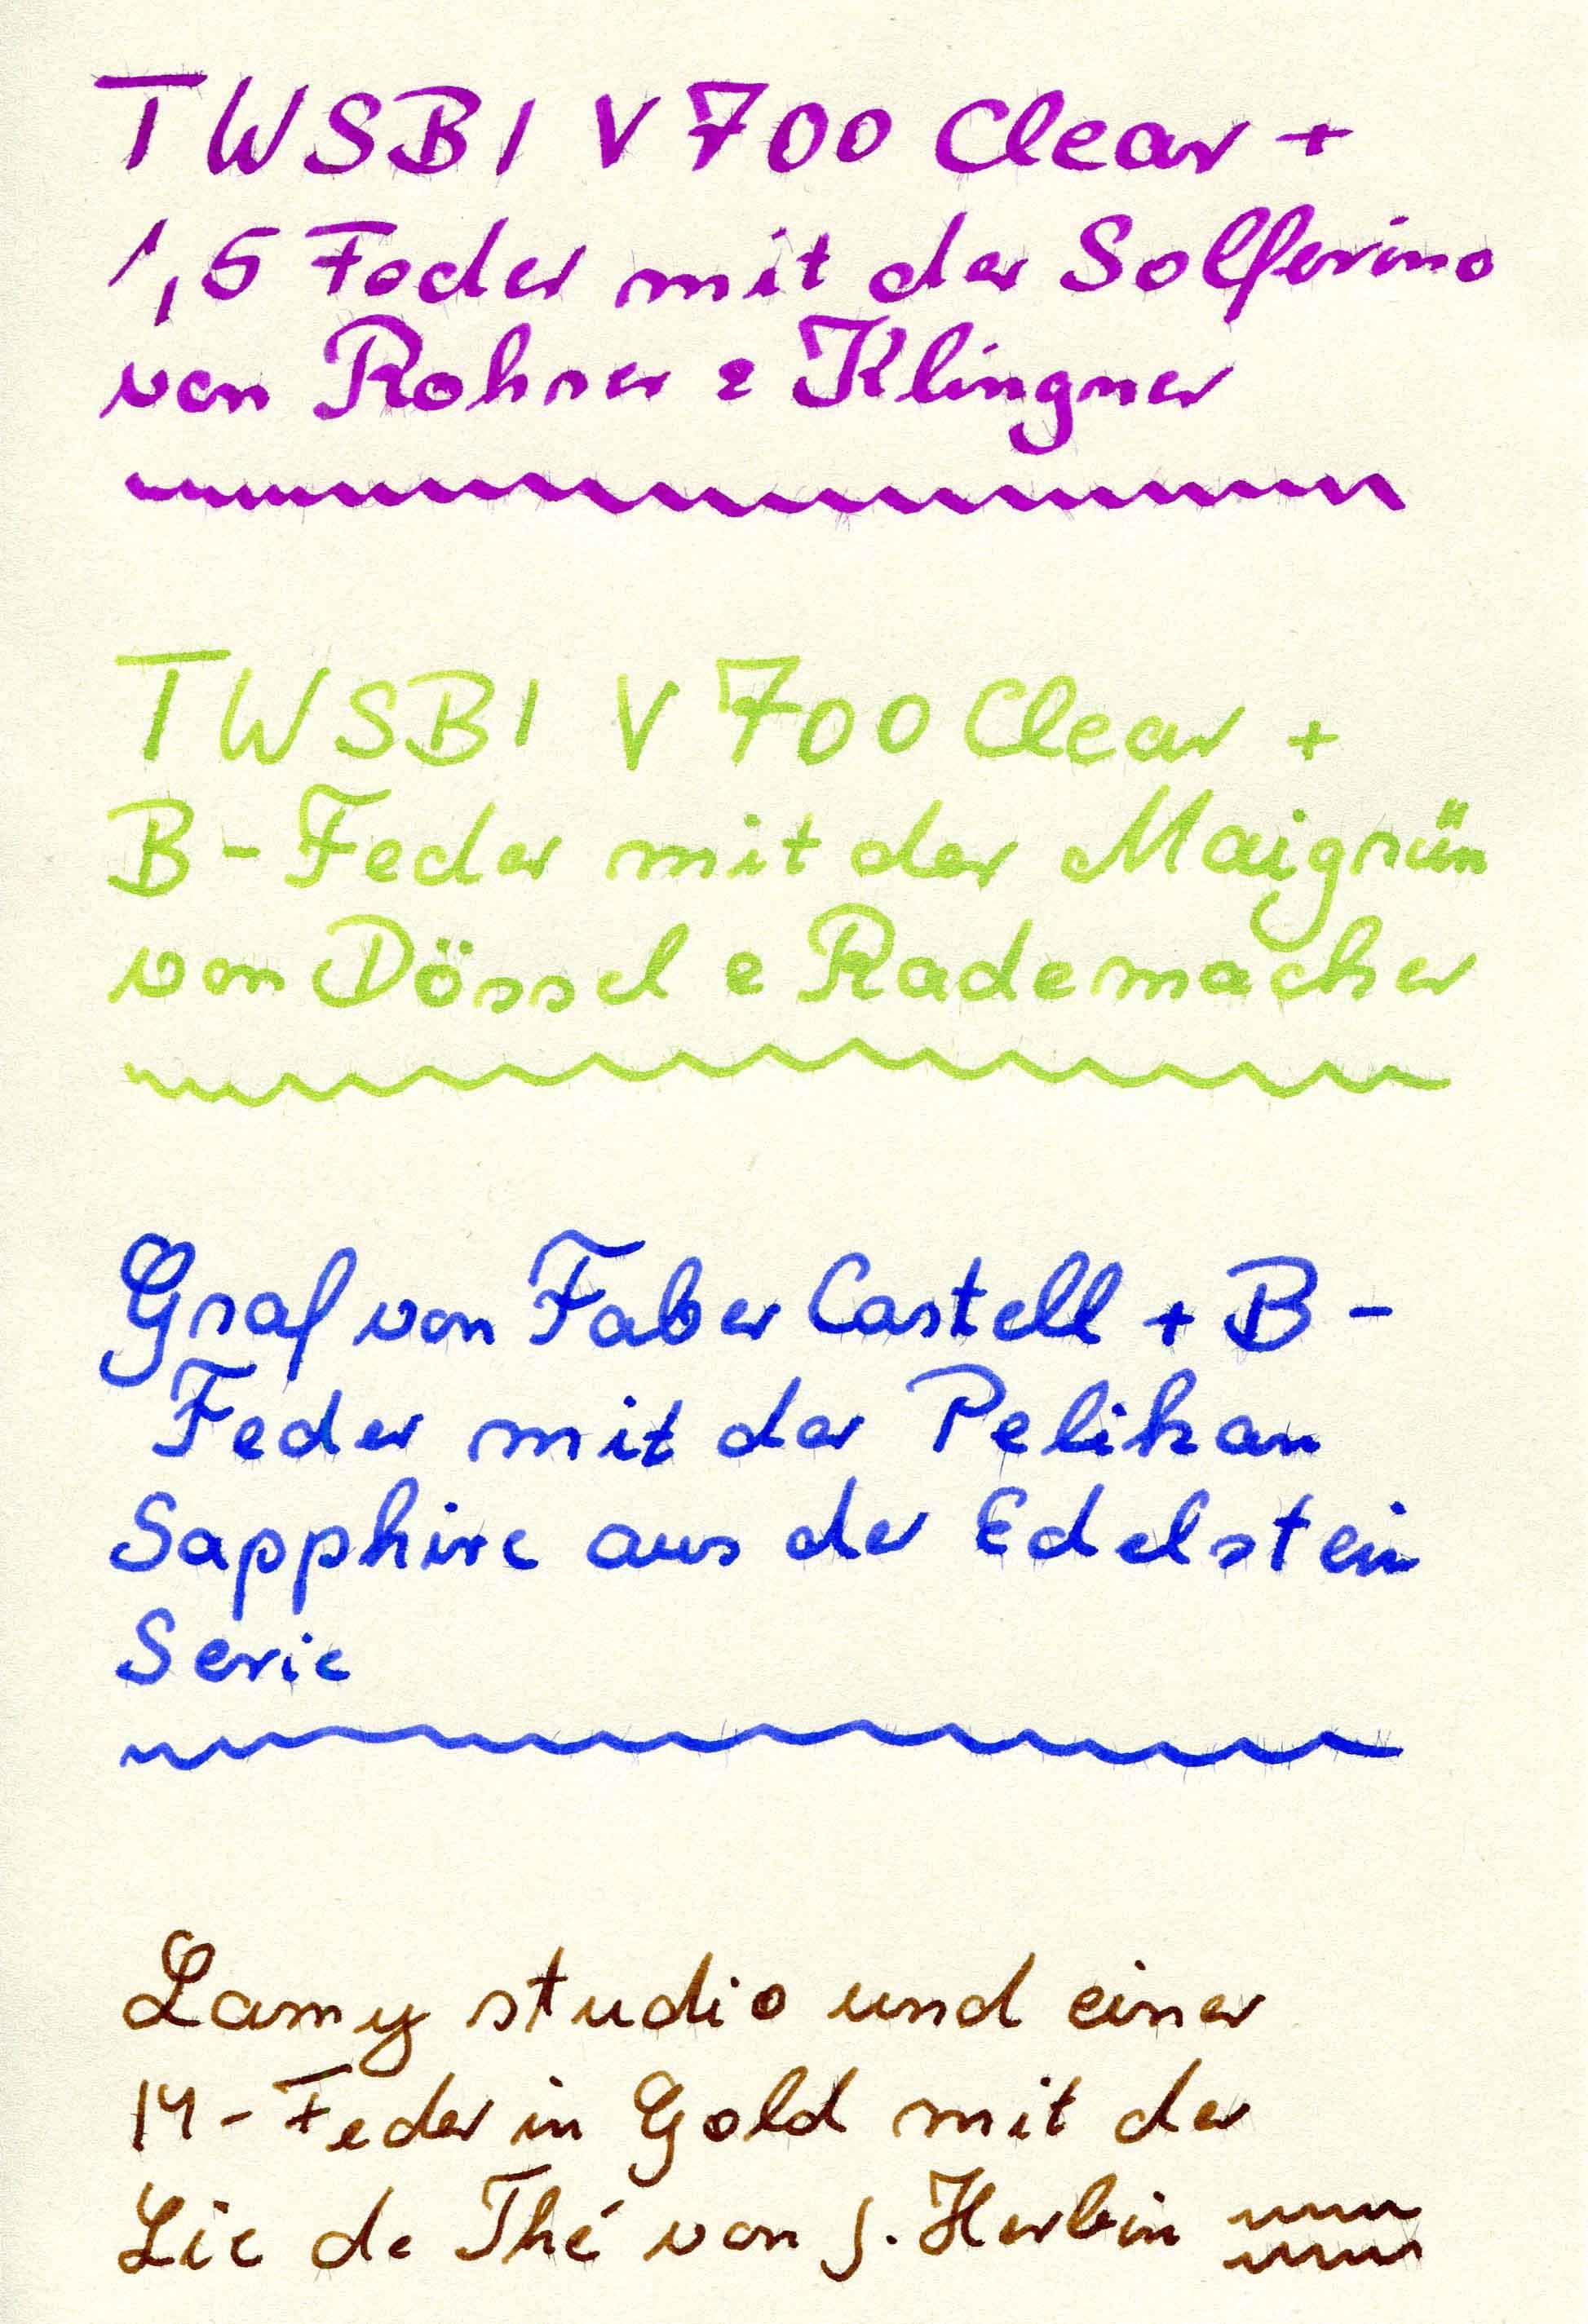 TWSBI V700 Clear +
1,5 Feder mit der Solferino
von Rohrer & Klingner
TWSBI V700 Clear +
B-Feder mit der Maigrün
von Dössel & Rademacher
Graf von Faber Castell + B-
Feder mit der Pelikan
Sapphire aus der Edelstein
Serie
Lamy studio und einer
M-Feder in Gold mit der
Lie de Thé von J. Herbin